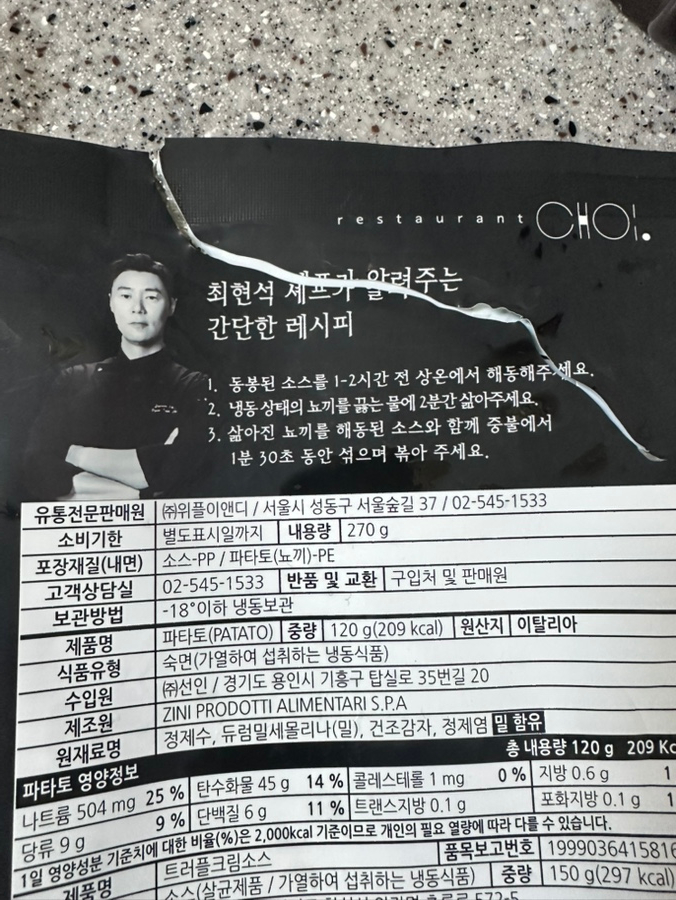 restaurant CHOI.
최현석 셰프가 알려주는
간단한 레시피
1. 동봉된 소스를 1-2시간 전 상온에서 해동해주세요.
2. 냉동 상태의 뇨끼를 끓는 물에 2분간 삶아주세요.
3. 삶아진 뇨끼를 해동된 소스와 함께 중불에서
1분 30초 동안 섞으며 볶아 주세요.
유통전문판매원 ㈜위플이앤디 / 서울시 성동구 서울숲길 37 / 02-545-1533
소비기한 별도표시일까지 내용량 270 g
포장재질(내면) 소스-PP / 파타토(뇨끼)-PE
고객상담실 02-545-1533 반품 및 교환 구입처 및 판매원
보관방법 -18°이하 냉동보관
제품명 파타토(PATATO) 중량 120 g(209 kcal) 원산지 이탈리아
식품유형 숙면(가열하여 섭취하는 냉동식품)
수입원 ㈜선인 / 경기도 용인시 기흥구 탑실로 35번길 20
제조원 ZINI PRODOTTI ALIMENTARI S.P.A
원재료명 정제수, 듀럼밀세몰리나(밀), 건조감자, 정제염 밀 함유
파타토 영양정보 총 내용량 120 g 209 Kc
나트륨 504 mg 25 % 탄수화물 45 g 14 % 콜레스테롤 1 mg 0 % 지방 0.6 g 1
당류 9 g 9 % 단백질 6 g 11 % 트랜스지방 0.1 g 포화지방 0.1 g 1
1일 영양성분 기준치에 대한 비율(%)은 2,000kcal 기준이므로 개인의 필요 열량에 따라 다를 수 있습니다.
제품명 트러플크림소스 품목보고번호 1999036415816
소스(살균제품 / 가열하여 섭취하는 냉동식품) 중량 150 g(297 kcal)